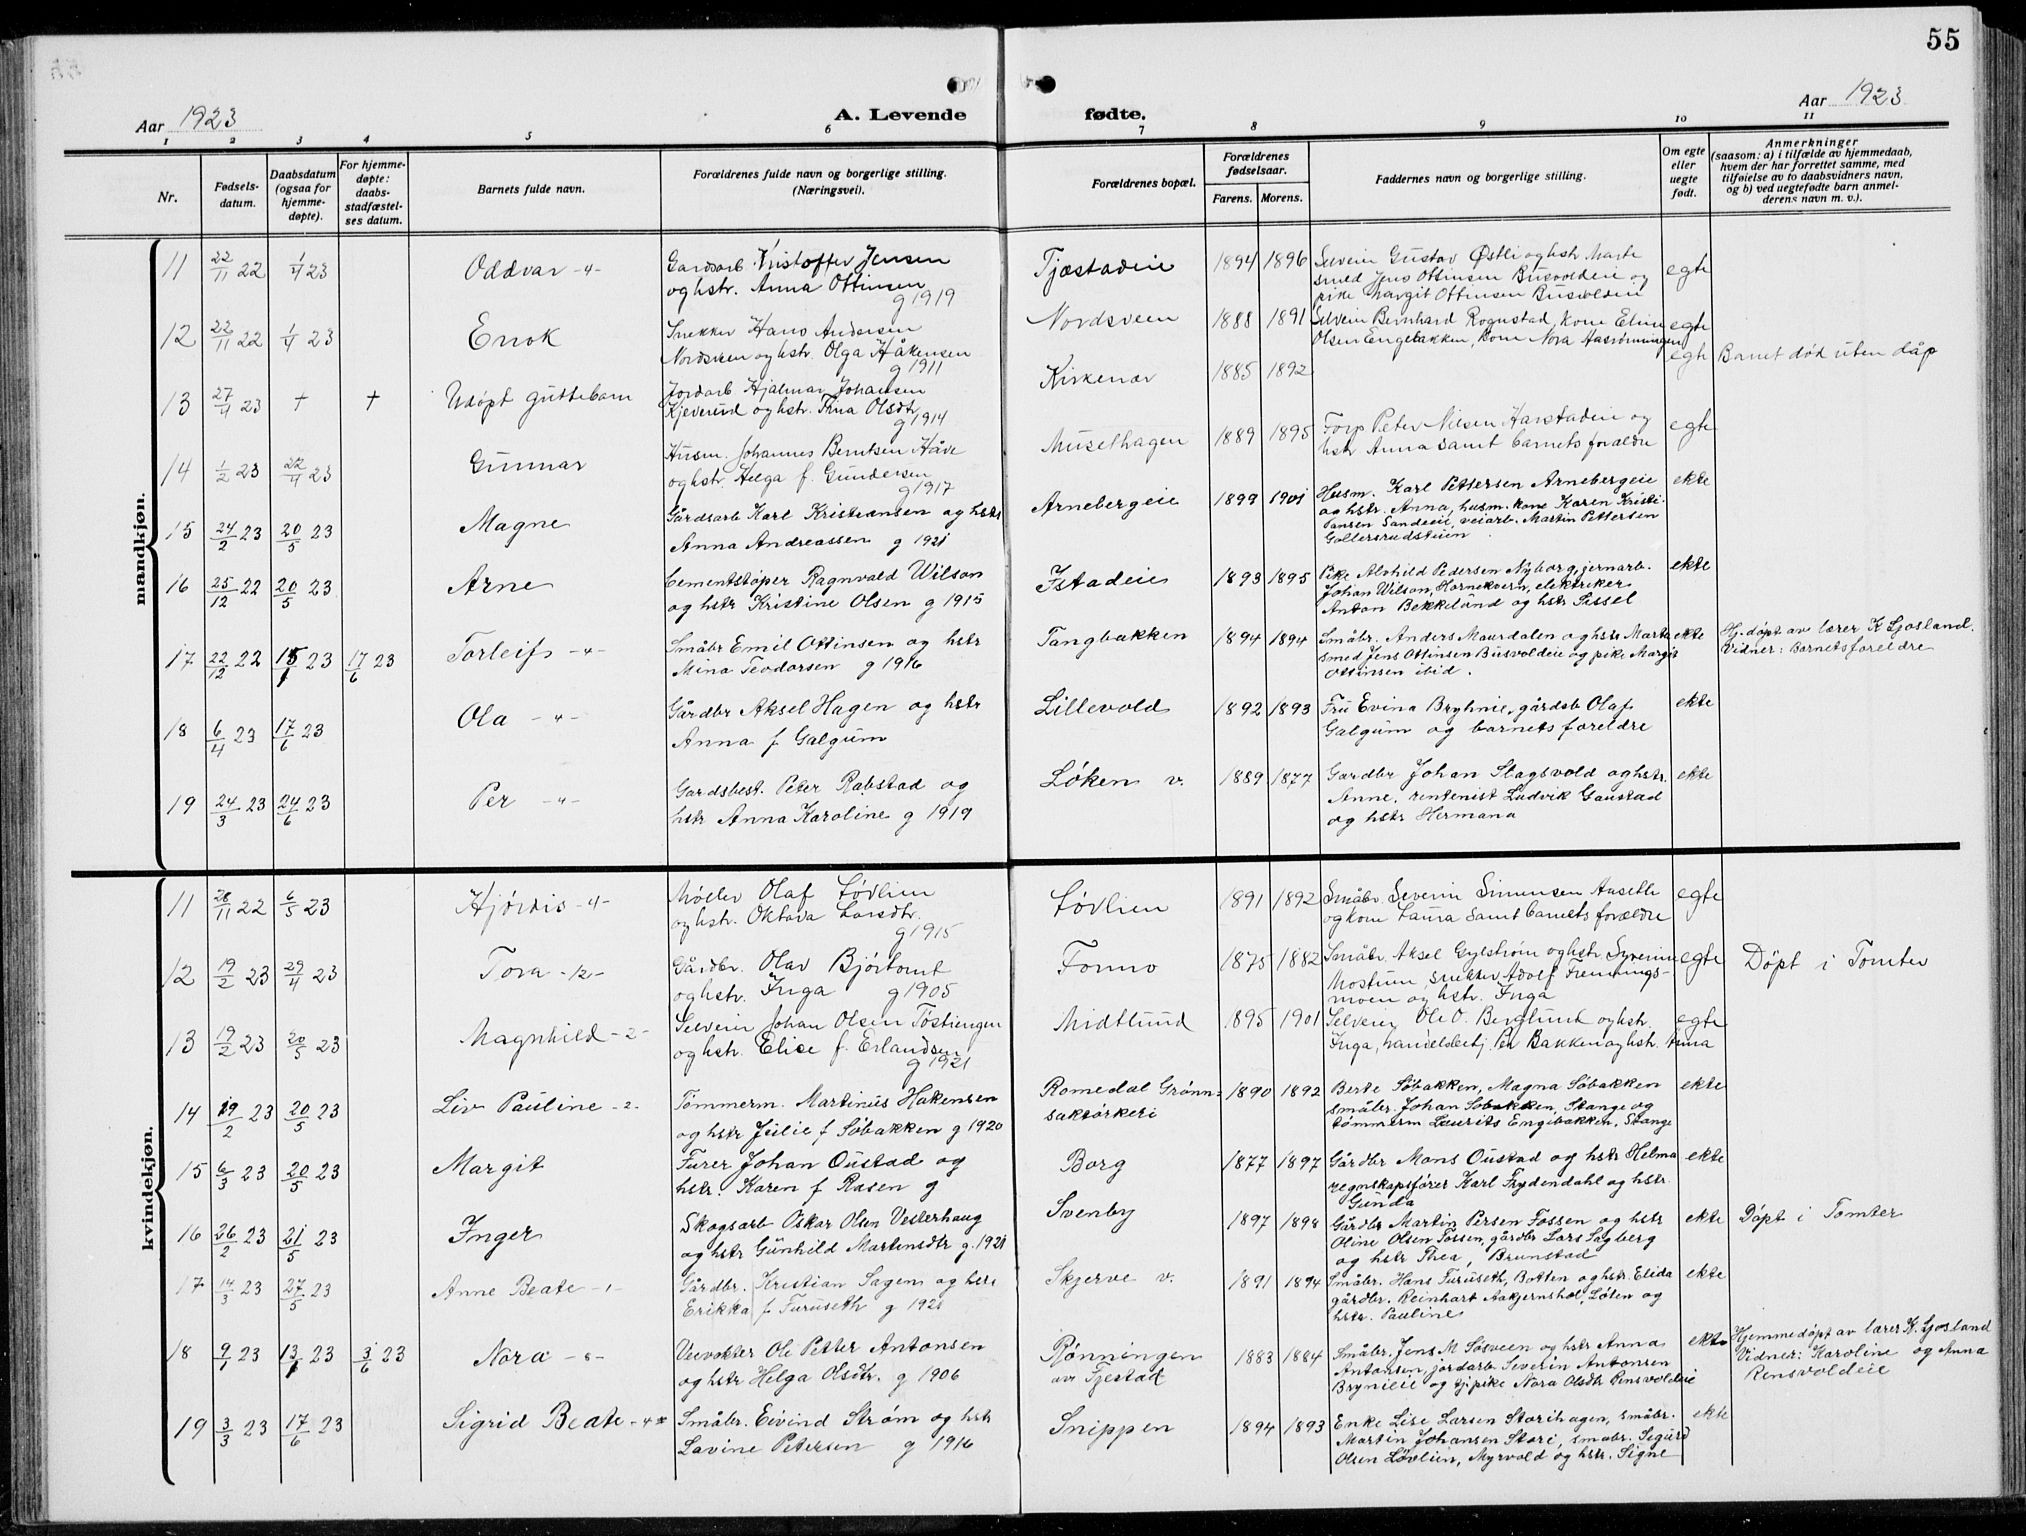 55
Aar 1923
A. Levende fødte.
Aar 1923
1 2 3 4 5 6 7 8 9 10 11
Nr.
Fødsels-
datum.
Daabsdatum
(ogsaa for
hjemme-
døpte).
For hjemme-
døpte:
daabs-
stadfæstel-
ses datum.
Barnets fulde navn.
Forældrenes fulde navn og borgerlige stilling.
(Næringsvei).
Forældrenes bopæl.
Forældrenes
fødselsaar.
Farens. Morens.
Faddernes navn og borgerlige stilling.
Om egte
eller
uegte
født.
Anmerkninger
(saasom: a) i tilfælde av hjemmedaab,
hvem der har forrettet samme, med
tilføielse av to daabsvidners navn,
og b) ved uegtefødte barn anmel-
derens navn m. v.).
mandkjøn.
11 22/11 22 1/4 23 Oddvar -4-
Gardsarb Kristoffer Jensen
og hstr. Anna Ottinsen
g 1919
Tjæstadeie 1894 1896
Selveier Gustav Østli og hstr Marte
smed Jens Ottinsen Busvoldeie og
pike Margit Ottinsen Busvoldeie
egte
12 22/11 22 1/4 23 Enok
Snekker Hans Andersen
Nordsveen og hstr. Olga Håkensen
g 1911
Nordsveen 1888 1891
Selveier Bernhard Rognstad, kone Eline
Olsen Engebakken, kone Nora Aasrønningen
egte
13 27/4 23 † † Udøpt guttebarn
Jordarb Hjalmar Johansen
Kjeverud og hstr. Tina Olsdtr
g 1914
Kirkenær 1885 1892
egte Barnet død uten dåp
14 1/2 23 22/4 23 Gunnar
Husm. Johannes Berntsen Håve
og hstr Helga f. Gundersen
g 1917
Muselhagen 1889 1895
Forp Peter Nilsen Harstadeie og
hstr Anna samt barnets forældre
egte
15 24/2 23 20/5 23 Magne
Gårdsarb Karl Kristiansen og hstr
Anna Andreassen g 1921
Arnebergeie 1899 1901
Husm. Karl Pettersen Arnebergeie
og hstr. Anna, husm. kone Karen Kristi-
ansen Sandeeie, veiarb. Martin Pettersen
Gollersrudstuen.
ekte
16 25/12 22 20/5 23 Arne
Cementstøper Ragnvald Wilson
og hstr Kristine Olsen g 1915
Istadeie 1893 1895
Pike Alvhild Pedersen Nyborg, jernarb.
Johan Wilson, Hornekvern, elektriker
Anton Bekkelund og hstr Sissel
ekte
17 22/12 22 15/1 23 17/6 23 Torleif -4-
Småbr Emil Ottinsen og hstr
Mina Teodorsen g 1916
Tangbakken 1894 1894
Småbr. Anders Maurdalen og hstr Marte
smed Jens Ottinsen Busvoldeie og pike Margit
Ottinsen ibid.
ekte
Hj.døpt av lærer K Ljosland.
Vidner: Barnets foreldre
18 6/4 23 17/6 23 Ola -4-
Gårdbr Aksel Hagen og hstr
Anna f Galgum
Lillevold 1892 1893
Fru Evina Brylinie, gårdsb Olaf
Galgum og barnets foreldre
ekte
19 24/3 23 24/6 23 Per -4-
Gardsbest. Peter Rabstad og
hstr Anna Karoline g 1919
Løken v. 1889 1877
Gardbr Johan Stagsvold og hstr.
Anne, rentenist Ludvik Gaustad
og hstr Hermana
ekte
kvindekjøn.
11 28/11 22 6/5 23 Hjørdis -4-
Møller Olaf Løvlien
og hstr. Oktava Larsdtr.
g 1915
Løvlien 1891 1892
Småbr. Severin Simensen Aaseth
og kone Laura samt barnets forældre
egte
12 19/2 23 29/4 23 Tora -12-
Gårdbr. Olav Bjørtomt
og hstr. Inga g 1905
Fonno 1875 1882
Småbr. Aksel Gylstrøm og hstr Syverine
Mostuen, snekker Adolf Flemmings-
moen og hstr. Inga
egte Døpt i Tomter
13 19/2 23 20/5 23 Magnhild -2-
Selveier Johan Olsen Tøstiengen
og hstr. Elise f. Erlandsen
g 1921
Midtlund 1895 1901
Selveier Ole O. Berglund og hstr.
Inga, handelsbetj. Per Bakken og hstr. Anna
egte
14 19/2 23 20/5 23 Liv Pauline -2-
Tømmerm. Martinus Hakensen
og hstr Julie f Søbakken g 1920
Romedal Grønn-
saktørkeri 1890 1892
Berte Søbakken, Magna Søbakken
småbr. Johan Søbakken, Stange og
tømmerm Laurits Engebakken, Stange
ekte
15 6/3 23 20/5 23 Margit
Furer Johan Oustad og
hstr. Karen f Rasen g
Borg 1877 1897
Gårdbr Mons Oustad og hstr Helma
regnskapsfører Karl Frydendahl og hstr
Gunda
ekte
16 26/2 23 21/5 23 Inger
Skogsarb Oskar Olsen Vesterhaug
og hstr Gunhild Martensdtr g. 1921
Svenby 1897 1898
Gårdbr Martin Persen Fossen og hstr
Oline Olsen Fossen, gårdbr Lars Sagberg
og hstr Thea, Brunstad
ekte Døpt i Tomter
17 14/3 23 27/5 23 Anne Beate -1-
Gårdbr. Kristian Sagen og hstr
Erikka f Furuseth g 1921
Skjerve v. 1891 1894
Småbr. Hans Furuseth, Botten og hstr. Elida
gårdbr. Reinhart Aakjernshol, Løten og
hstr. Pauline
ekte
18 9/1 23 13/1 23 3/6 23 Nora -8-
Veivokter Ole Petter Antonsen
og hstr Helga Olsdtr. g 1906
Rønningen
av Tjestad 1883 1884
Småbr. Jens M Søsveen og hstr Anna
Antonsen, jordarb Severin Antonsen
Brynileie og tj pike Nora Olsdtr Rensvoldeie
ekte
Hjemmedøpt av lærer K. Ljosland
Vidner: Karoline og Anna
Rensvoldeie
19 3/3 23 17/6 23 Sigrid Beate -4-
Småbr. Eivind Strøm og hstr
Lavine Petersen g 1916
Snippen 1894 1893
Enke Lise Larsen Storihagen, småbr.
Martin Johansen Stori, småbr. Sigurd
Olsen Løvlien, Myrvold og hstr. Signe
ekte